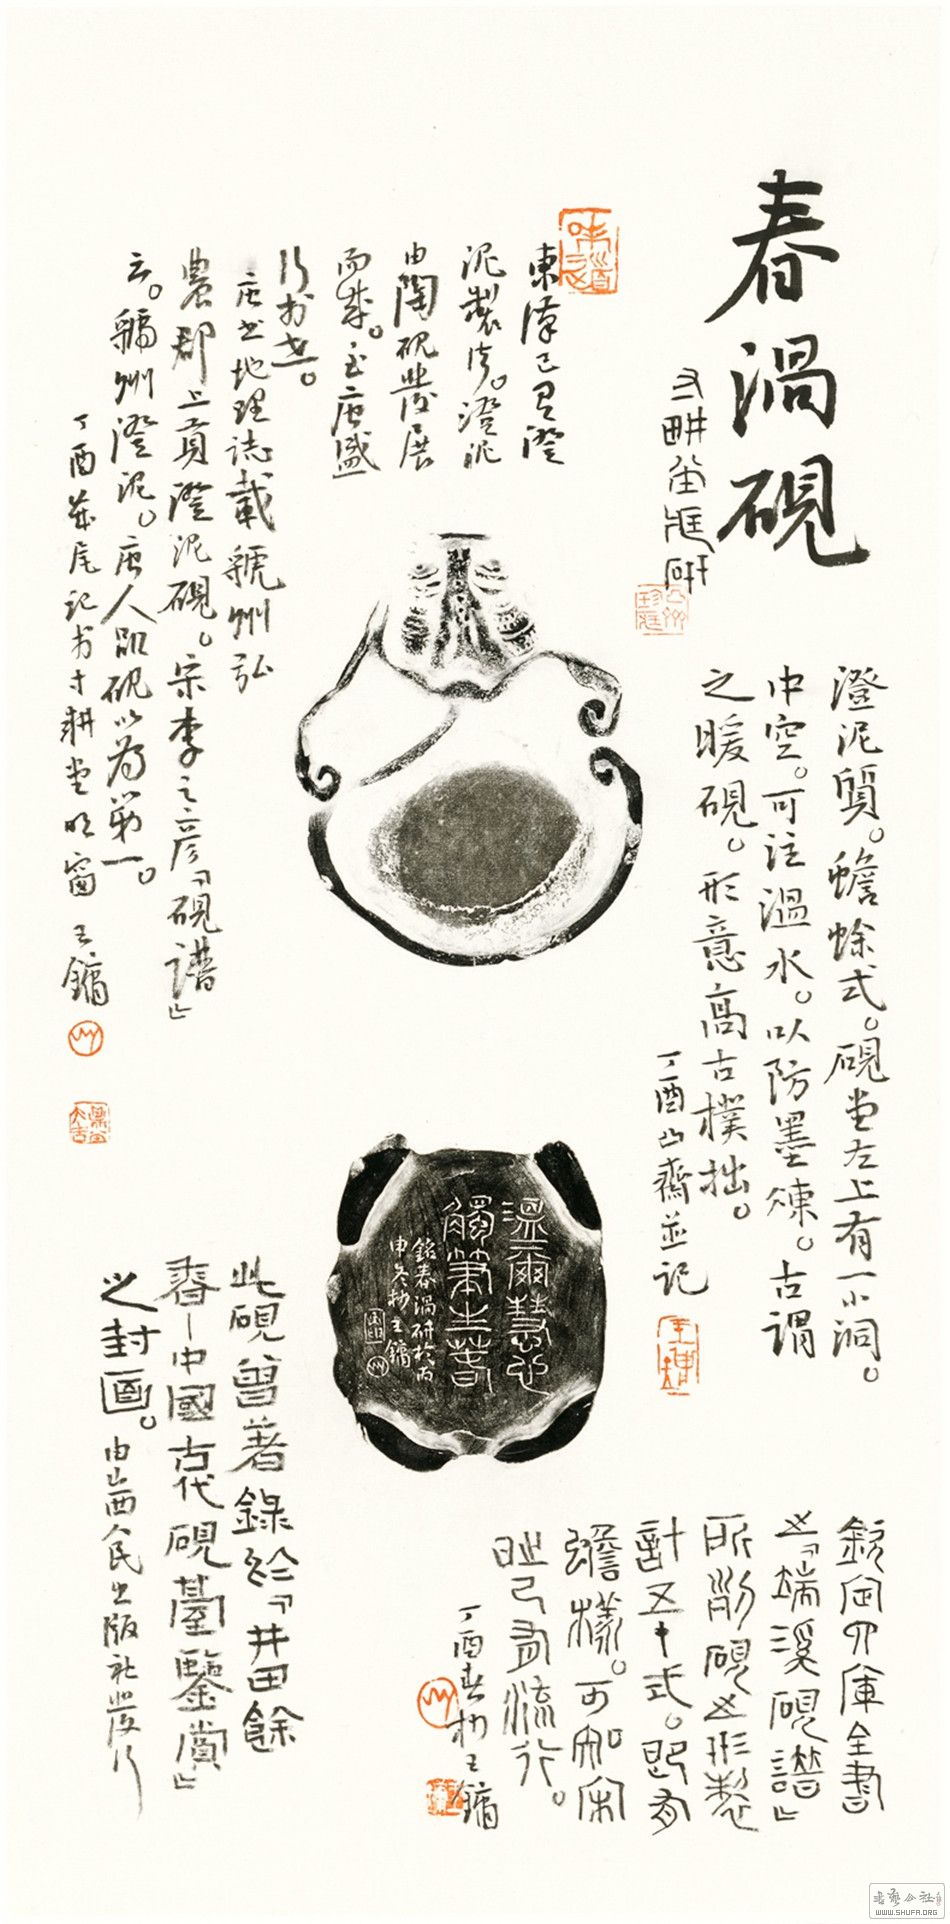 春渦硯
澄泥質。蟾蜍式。硯堂左上有一小洞。
中空。可注溫水。以防墨凍。古謂
之暖硯。形意高古樸拙。
丁酉山齋並記
東漢已有澄
泥製作。澄泥
由陶硯發展
而成。至唐盛
行於世。
唐書地理誌載虢州弘
農郡上貢澄泥硯。宋李之彥「硯譜」
云。虢州澄泥。唐人品硯以為第一。
丁酉歲尾記於寸耕堂明窗王鏞
溫爾慧心
觸筆生春
銘春渦研於丙
申冬初王鏞
欽定四庫全書
之「端溪硯譜」
所列硯之形製
計五十式。即有
蟾樣。可知宋
時已有流行。
丁酉春初王鏞
此硯曾著錄於「井田餘
春—中國古代硯臺鑒賞」
之封面。由山西人民出版社發行
WWW.SHUFA.ORG